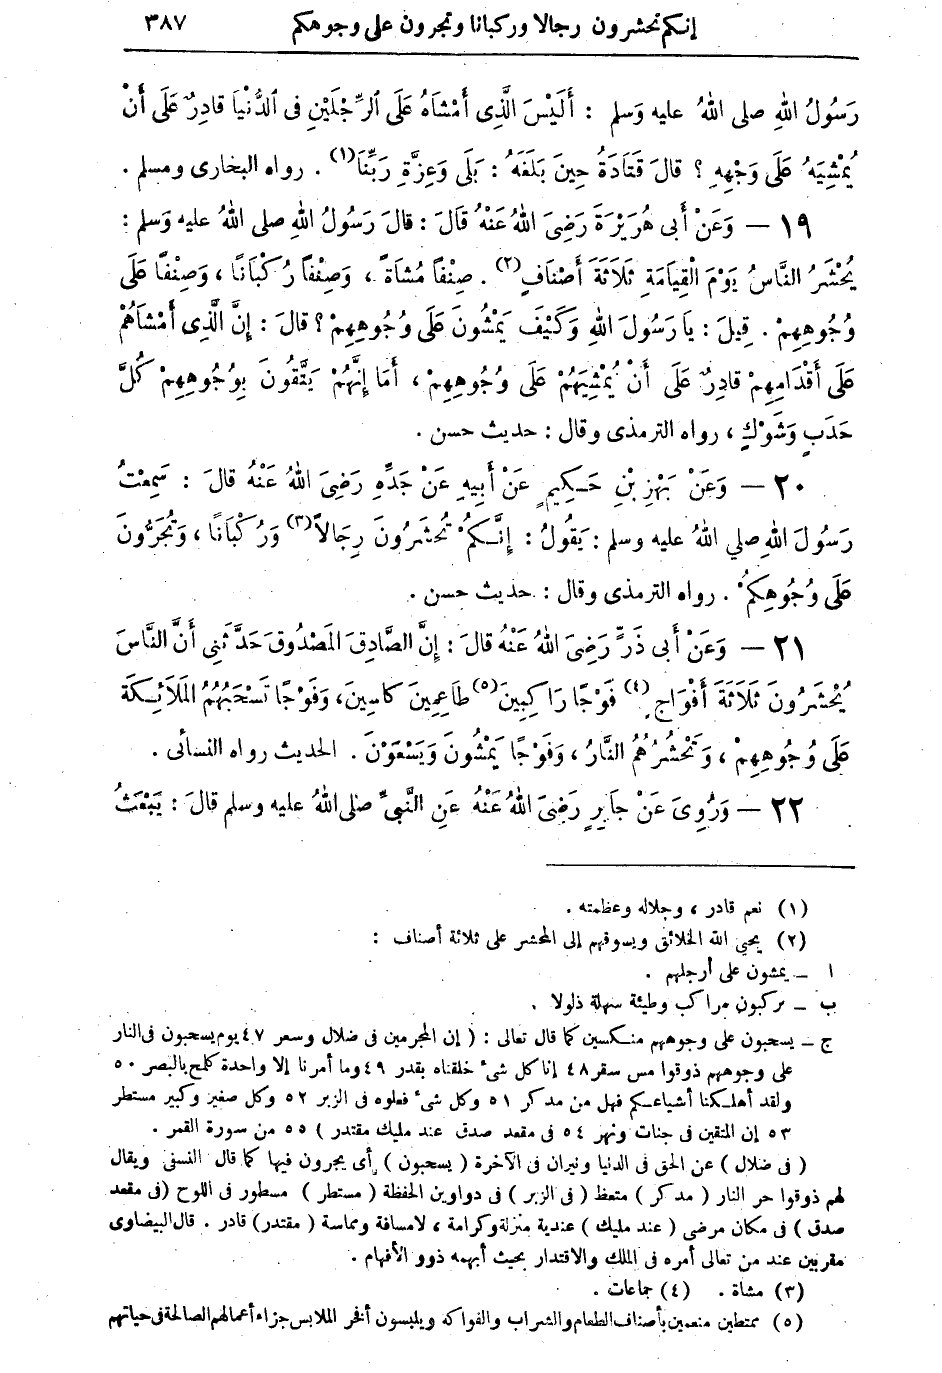 إنكم تحشرون رجالا وركبانا وتجرون على وجوهكم ٣٨٧
رَسُولُ اللهِ صلى اللهُ عليه وَسلم : أَلَيْسَ الَّذِى أَمْشَاهُ عَلَى الرِّجْلَيْنِ فى الدُّنْيَا قَادِرٌ عَلَى أَنْ
يُمْشِيَهُ عَلَى وَجْهِهِ ؟ قالَ قَتَادَةُ حِينَ بَلَغَهُ : بَلَى وَعِزَّةِ رَبِّنَا (١) . رواه البخارى ومسلم .
١٩ — وَعَنْ أَبى هُرَيْرَةَ رَضِىَ اللهُ عَنْهُ قَالَ : قالَ رَسُولُ اللهِ صلى اللهُ عليه وَسلم :
يُحْشَرُ النَّاسُ يَوْمَ الْقِيَامَةِ ثَلَاثَةَ أَصْنَافٍ (٢) . صِنْفاً مُشَاةً ، وَصِنْفاً رُكْبَانًا ، وَصِنْفًا عَلَى
وُجُوهِهِمْ . قِيلَ : يا رَسُولَ اللهِ وَكَيْفَ يَمْشُونَ عَلَى وُجُوهِهِمْ ؟ قالَ : إِنَّ الَّذِى أَمْشَاهُمْ
عَلَى أَقْدَامِهِمْ قادِرٌ عَلَى أَنْ يُمْشِيَهُمْ عَلَى وُجُوهِهِمْ ، أَمَا إِنَّهُمْ يَتَّقُونَ بِوُجُوهِهِمْ كُلَّ
حَدَبٍ وَشَوْكٍ ، رواه الترمذى وقال : حديث حسن .
٢٠ — وَعَنْ بَهْزِ بْنِ حَكِيمٍ عَنْ أَبِيهِ عَنْ جَدِّهِ رَضِىَ اللهُ عَنْهُ قالَ : سَمِعْتُ
رَسُولَ اللهِ صلي اللهُ عليه وسلم : يَقُولُ : إِنَّكمُ تُحْشَرُونَ رِجالاً (٣) وَرُكْبَانًا ، وَتُجَرُّونَ
عَلَى وُجُوهِكمُ . رواه الترمذى وقال : حديث حسن .
٢١ — وَعَنْ أَبى ذَرٍّ رَضِىَ اللهُ عَنْهُ قالَ : إِنَّ الصَّادِقَ المَصْدُوقَ حَدَّثَنِى أَنَّ النَّاسَ
يُحْشَرُونَ ثَلَاثَةَ أَفْوَاجٍ (٤) فَوْجًا رَاكِبِينَ (٥) طَاعِمِينَ كاسِينَ ، وَفَوْجًا تَسْحَبُهُمُ المَلَائِكَة
عَلَى وُجُوهِهِمْ ، وَتَحْشُرُهُمُ النَّارُ ، وَفَوْجًا يَمْشُونَ وَيَسْعَوْنَ . الحديث رواه النسائى .
٢٢ — وَرُوِىَ عَنْ جَابِرٍ رَضِىَ اللهُ عَنْهُ عَنِ النَّبِىِّ صلى اللهُ عليه وسلم قالَ : يَبْعَثُ
(١) نعم قادر ، وجلاله وعظمته .
(٢) يحيي الله الخلائق ويسوقهم إلى المحشر على ثلاثة أصناف :
ا – يمشون على أرجلهم .
ب – يركبون مراكب وطيئة سهلة ذلولا .
ج – يسحبون على وجوههم منكسين كما قال تعالى : ( إن المجرمين فى ضلال وسعر ٤٧ يوم يسحبون فى النار
على وجوههم ذوقوا مس سقر ٤٨ إنا كل شىء خلقناه بقدر ٤٩ وما أمرنا إلا واحدة كلمح بالبصر ٥٠
ولقد أهلكنا أشياعكم فهل من مدكر ٥١ وكل شىء فعلوه فى الزبر ٥٢ وكل صغير وكبير مستطر
٥٣ إن المتقين فى جنات ونهر ٥٤ فى مقعد صدق عند مليك مقتدر ) ٥٥ من سورة القمر .
( فى ضلال ) عن الحق فى الدنيا ونيران فى الآخرة ( يسحبون ) أى يجرون فيها كما قال النسفى ويقال
لهم ذوقوا حر النار ( مدكر ) متعظ ( فى الزبر ) فى دواوين الحفظة ( مستطر ) مسطور فى اللوح ( فى مقعد
صدق ) فى مكان مرضى ( عند مليك ) عندية منزلة وكرامة ، لامسافة ومماسة ( مقتدر ) قادر . قال البيضاوى
مقربين عند من تعالى أمره فى الملك والاقتدار بحيث أبهمه ذوو الأفهام .
(٣) مشاة . (٤) جماعات .
(٥) ممتطين منعمين بأصناف الطعام والشراب والفواكه ويلبسون أفخر الملابس جزاء أعمالهم الصالحة فى حياتهم